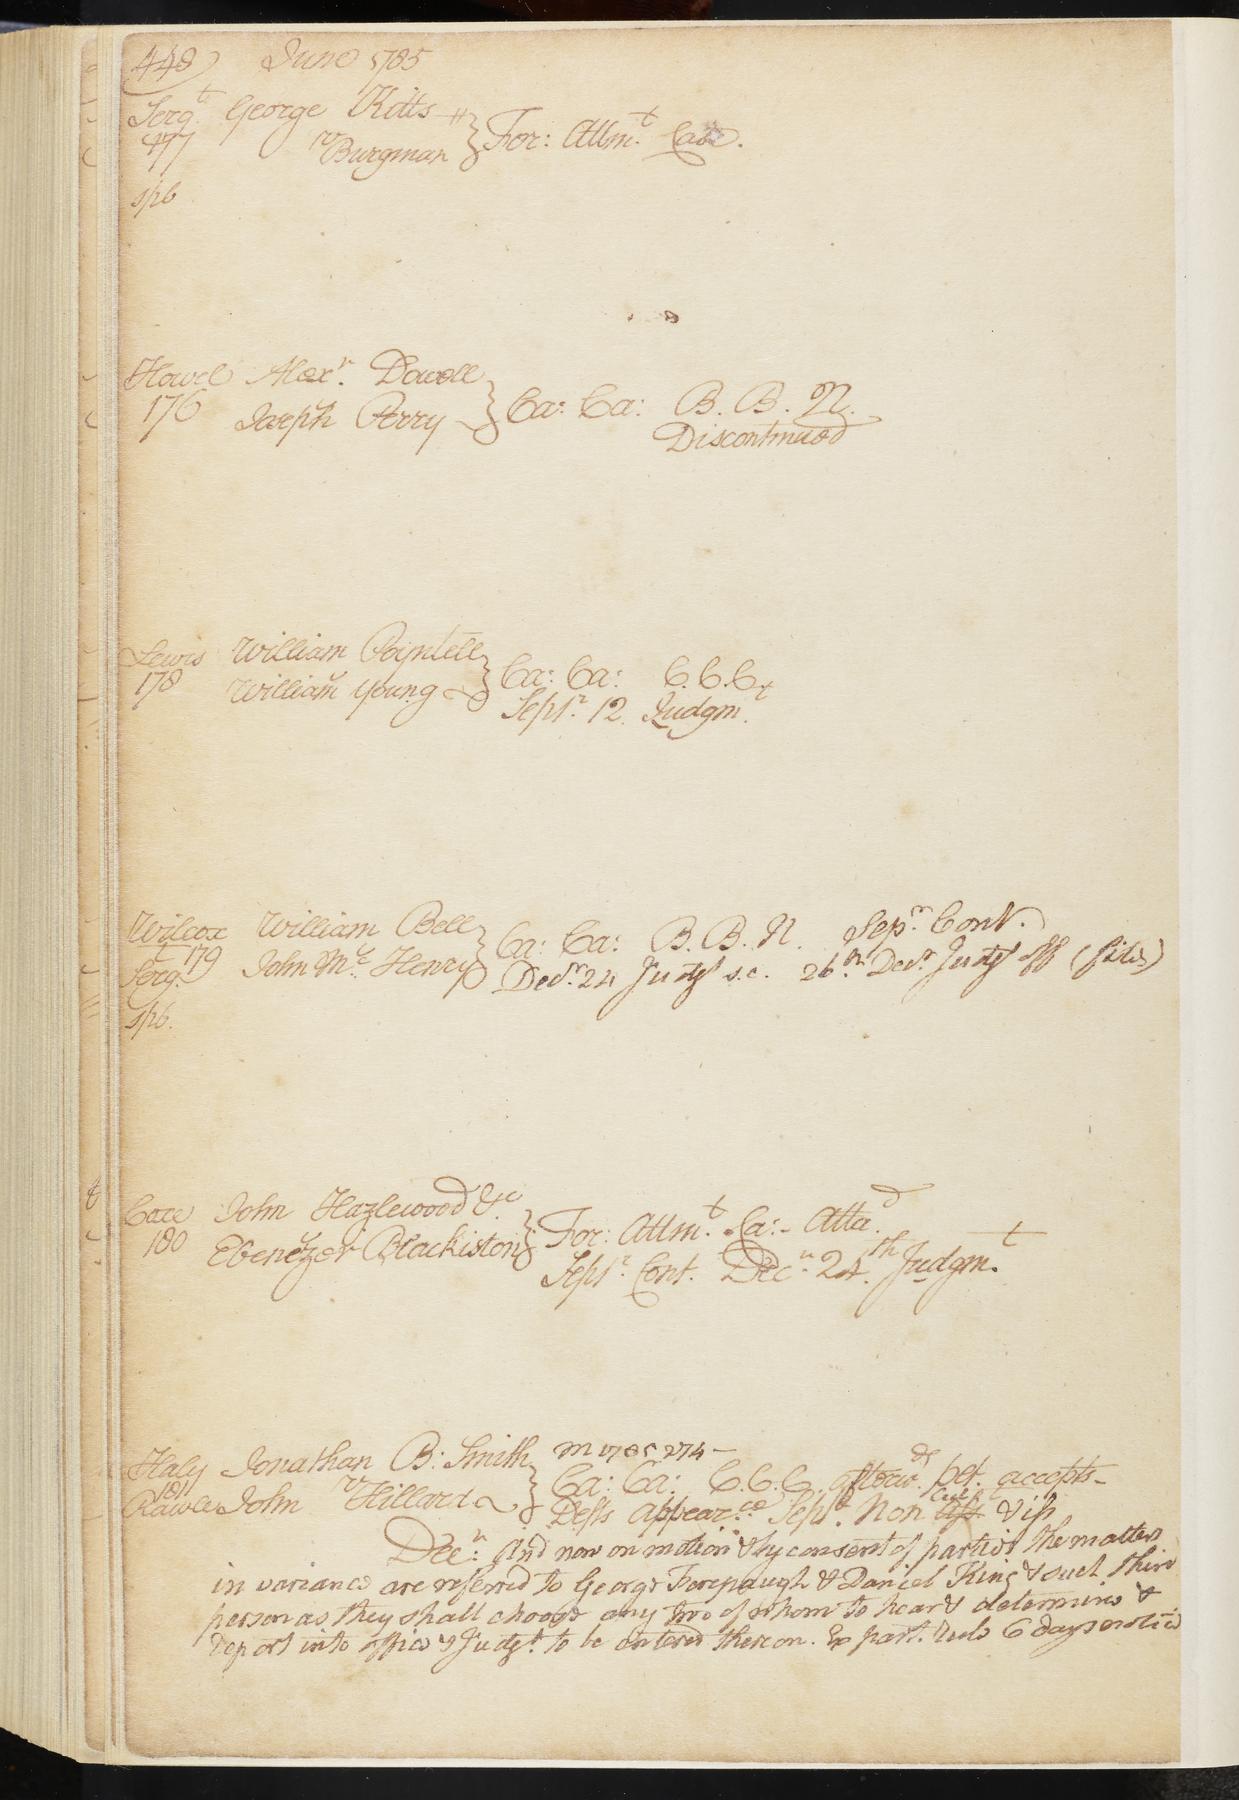 448) June 1785
Serg.t George Kitts
177 v Burgman } For: Attm.t Case.
spb
Howel Alex.r Dowell
176 v Joseph Perry } Ca: Ca: B. B. N.
Discontinued
Lewis William Poyntell
178 v William Young } Ca: Ca: C.C.C.
Sept.r 12. Judgm.t
Wilcox William Bell
179 v John M.c Henry } Ca: Ca: B. B. N. Sep.r Cont.
Serg.t Dec.r 24 Judg.t s.c. 26.th Dec.r Judg.t off (filed)
spb.
Care John Hazlewood &c
180 v Ebenezer Blackiston } For: Attm.t Ca:- Atta.d
Sept.r Cont. Dec.r 24.th Judgm.t
Haly Jonathan B: Smith M 1785 274-
181 v Ca: Ca: C.C.C. afterw.ds accepts-
Rawle John Hillard } Defts appear.ce Sept.r Non Cul &
Dec.r And now on motion & by consent of parties the matters
in variance are referred to George Forepaugh & Daniel King & such third
person as they shall choose any two of whom to hear & determine &
report into office & Judg.t to be entered thereon. Ex part. rule 6 days notice